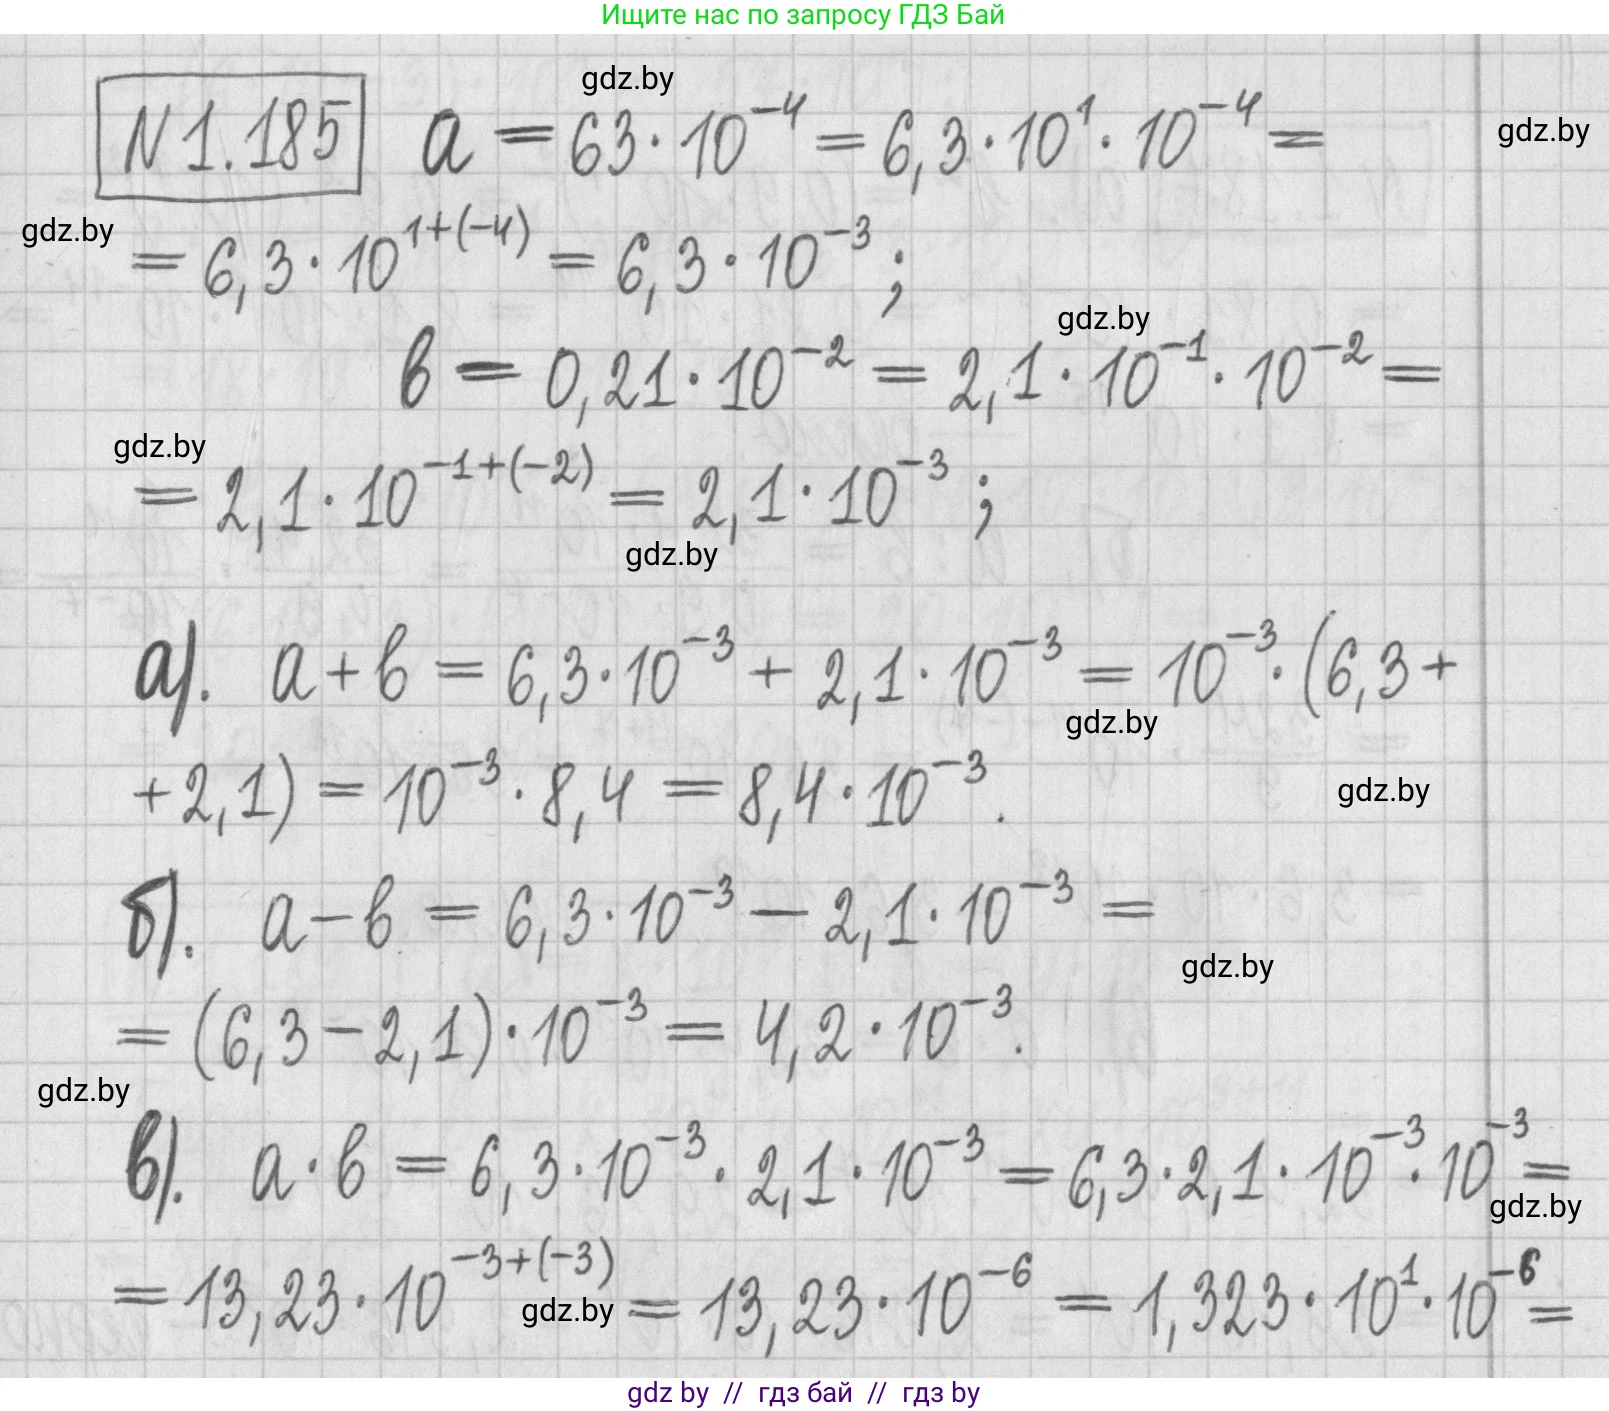 Ищите нас по запросу ГДЗ Бай
gdz.by
N 1.185 a = 63 · 10⁻⁴ = 6,3 · 10¹ · 10⁻⁴ =
gdz.by
gdz.by
= 6,3 · 10¹⁺⁽⁻⁴⁾ = 6,3 · 10⁻³ ;
gdz.by
b = 0,21 · 10⁻² = 2,1 · 10⁻¹ · 10⁻² =
gdz.by
= 2,1 · 10⁻¹⁺⁽⁻²⁾ = 2,1 · 10⁻³ ;
gdz.by
а). a + b = 6,3 · 10⁻³ + 2,1 · 10⁻³ = 10⁻³ · (6,3 +
gdz.by
+ 2,1) = 10⁻³ · 8,4 = 8,4 · 10⁻³.
gdz.by
б). a − b = 6,3 · 10⁻³ − 2,1 · 10⁻³ =
gdz.by
= (6,3 − 2,1) · 10⁻³ = 4,2 · 10⁻³.
gdz.by
в). a · b = 6,3 · 10⁻³ · 2,1 · 10⁻³ = 6,3 · 2,1 · 10⁻³ · 10⁻³ =
gdz.by
= 13,23 · 10⁻³⁺⁽⁻³⁾ = 13,23 · 10⁻⁶ = 1,323 · 10¹ · 10⁻⁶ =
gdz.by
gdz by // гдз бай // гдз by